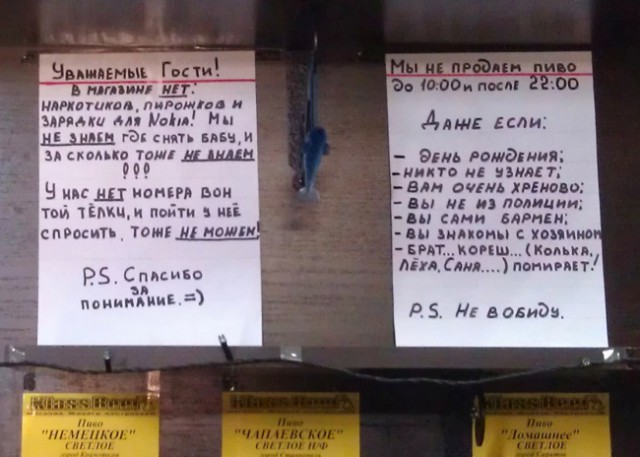 Уважаемые Гости!
В МАГАЗИНЕ НЕТ:
НАРКОТИКОВ, ПИРОЖКОВ И
ЗАРЯДКИ ДЛЯ NOKIA! МЫ
НЕ ЗНАЕМ ГДЕ СНЯТЬ БАБУ, И
ЗА СКОЛЬКО ТОЖЕ НЕ ЗНАЕМ
!!!
У НАС НЕТ НОМЕРА ВОН
ТОЙ ТЁЛКИ, И ПОЙТИ У НЕЁ
СПРОСИТЬ, ТОЖЕ НЕ МОЖЕМ!
P.S. Спасибо
ЗА
ПОНИМАНИЕ. =)
Мы не продаем пиво
до 10:00 и после 22:00
Даже если:
- ДЕНЬ РОЖДЕНИЯ;
- НИКТО НЕ УЗНАЕТ;
- ВАМ ОЧЕНЬ ХРЕНОВО;
- ВЫ НЕ ИЗ ПОЛИЦИИ;
- ВЫ САМИ БАРМЕН;
- ВЫ ЗНАКОМЫ С ХОЗЯИНОМ
- БРАТ... КОРЕШ... (КОЛЬКА,
ЛЁХА, САНЯ....) ПОМИРАЕТ!
P.S. НЕ В ОБИДУ.
Пиво
"НЕМЕЦКОЕ"
СВЕТЛОЕ
Пиво
"ЧАПАЕВСКОЕ"
СВЕТЛОЕ Н/Ф
Пиво
"Домашнее"
СВЕТЛОЕ